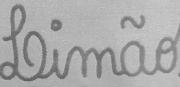 Limão